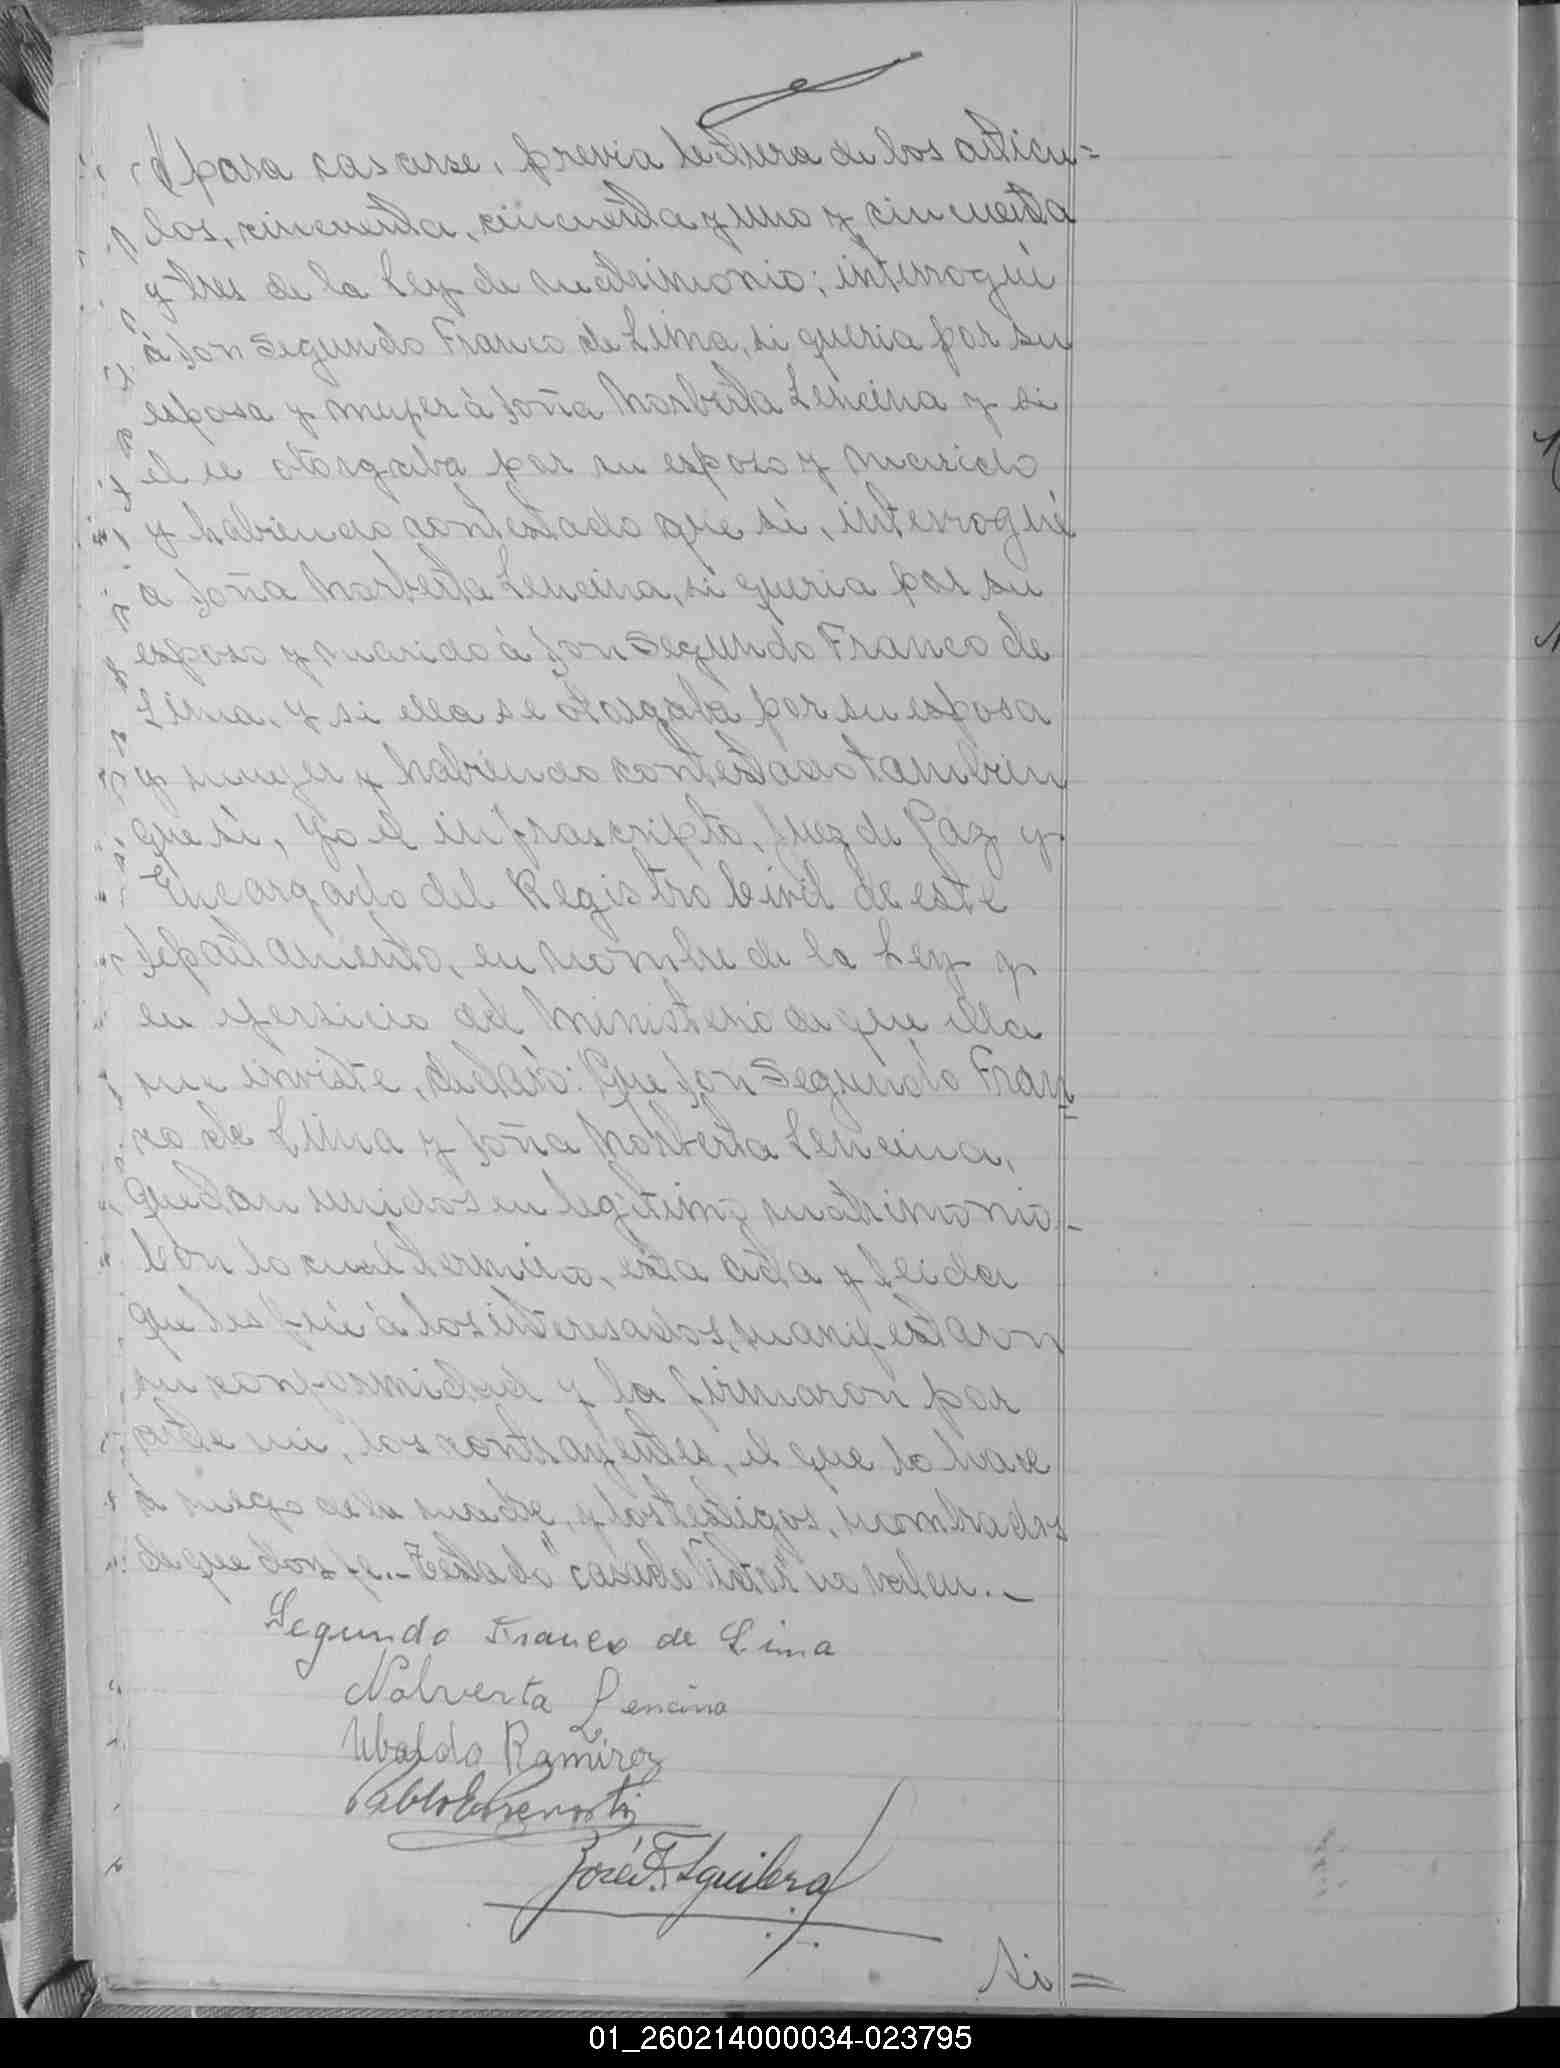 para casarse, previa lectura de los articu=
los, cincuenta, cincuenta y uno y cincuenta
y tres de la Ley de matrimonio; interrogué
á Don Segundo Franco de Lima, si queria por su
esposa y mujer á Doña Norberta Lencina y si
él se otorgaba por su esposo y marido
y habiendo contestado que sí, interrogué
a Doña Norberta Lencina, si queria por su
esposo y marido á Don Segundo Franco de
Lima, y si ella se otorgaba por su esposa
y muger y habiendo contestado tambien
que sí, Yo el infrascripto, Juez de Paz y
Encargado del Registro Civil de este
Departamento, en nombre de la Ley y
en ejersicio del Ministerio de que ella
me inviste, declaro: Que Don Segundo Fran=
co de Lima y Doña Norberta Lencina,
quedan unidos en legítimo matrimonio.-
Con lo cual termino, esta acta y leida
que les fué á los interesados, manifestaron
su conformidad y la firmaron por
ante mi, los contrayentes, el que lo hace
á ruego de la madre, y los testigos, nombrados
de que doy fe.- Testado "casado" no valen.-
Segundo Franco de Lima
Nolverta Lencina
Ubaldo Ramirez
Pablo E. Prevosti
José F. Aguilera
Si=
01_260214000034-023795